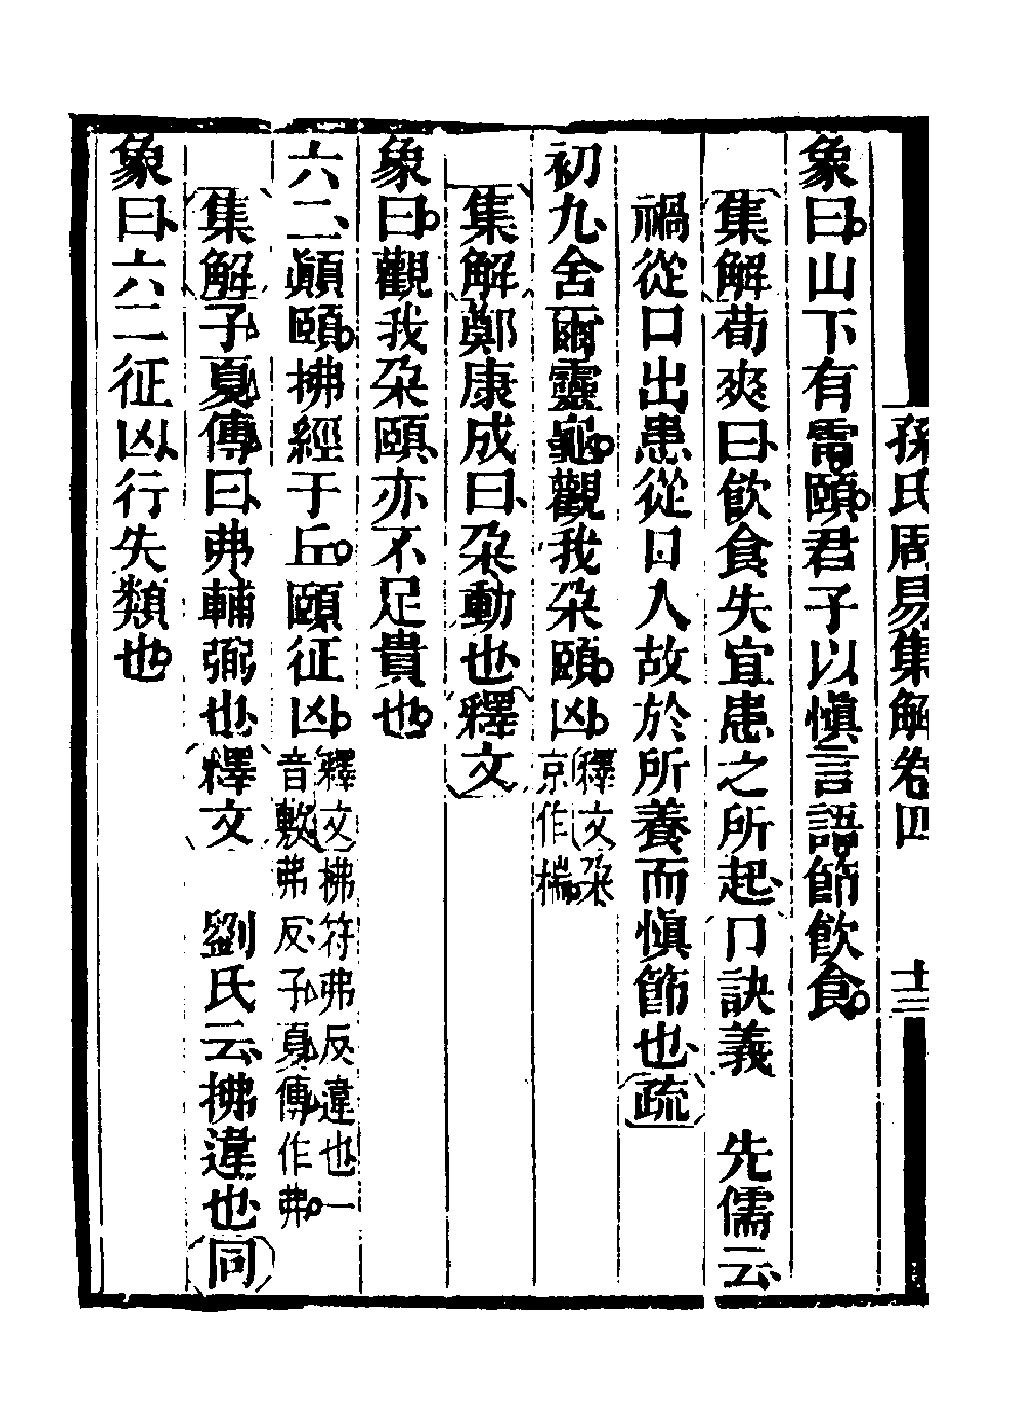 孫氏周易集解卷四
十三
象曰。山下有雷頤。君子以愼言語。節飮食。
〔集解〕荀爽曰、飮食失宜患之所起、〔口訣義 先儒云、
禍從口出患從口入故於所養而愼節也、〔疏〕
初九、舍爾靈龜。觀我朶頤。凶。〔釋文〕朶
京作椯。
〔集解〕鄭康成曰、朶動也、〔釋文〕
象曰。觀我朶頤、亦不足貴也。
六二、顚頤。拂經于丘。頤征凶。〔釋文〕拂符弗反違也、一
音敷弗反、子夏傳作弗。
〔集解〕子夏傳曰、弗輔弼也、〔釋文〕 劉氏云、拂違也、〔同〕
象曰、六二征凶、行失類也。